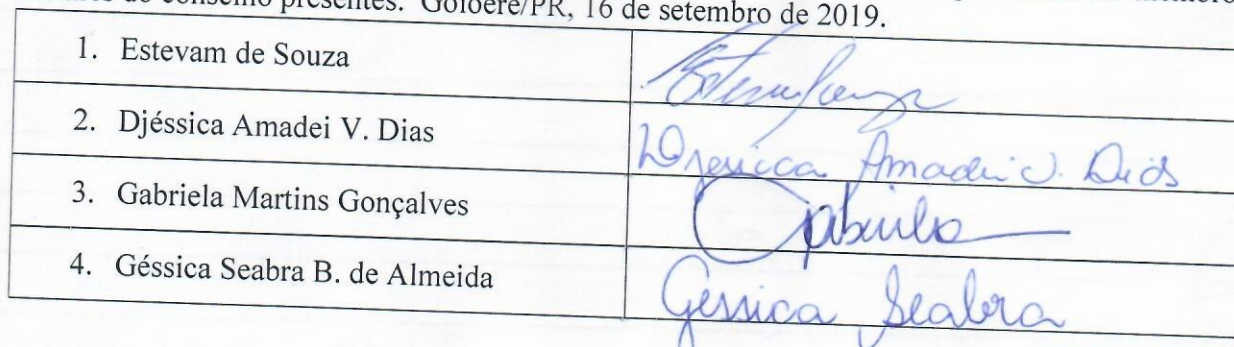 do conselho presentes. Goioerê/PR, 16 de setembro de 2019.
1. Estevam de Souza
2. Djéssica Amadei V. Dias Djessica Amadei V. Dias
3. Gabriela Martins Gonçalves Gabriela
4. Géssica Seabra B. de Almeida Gessica Seabra